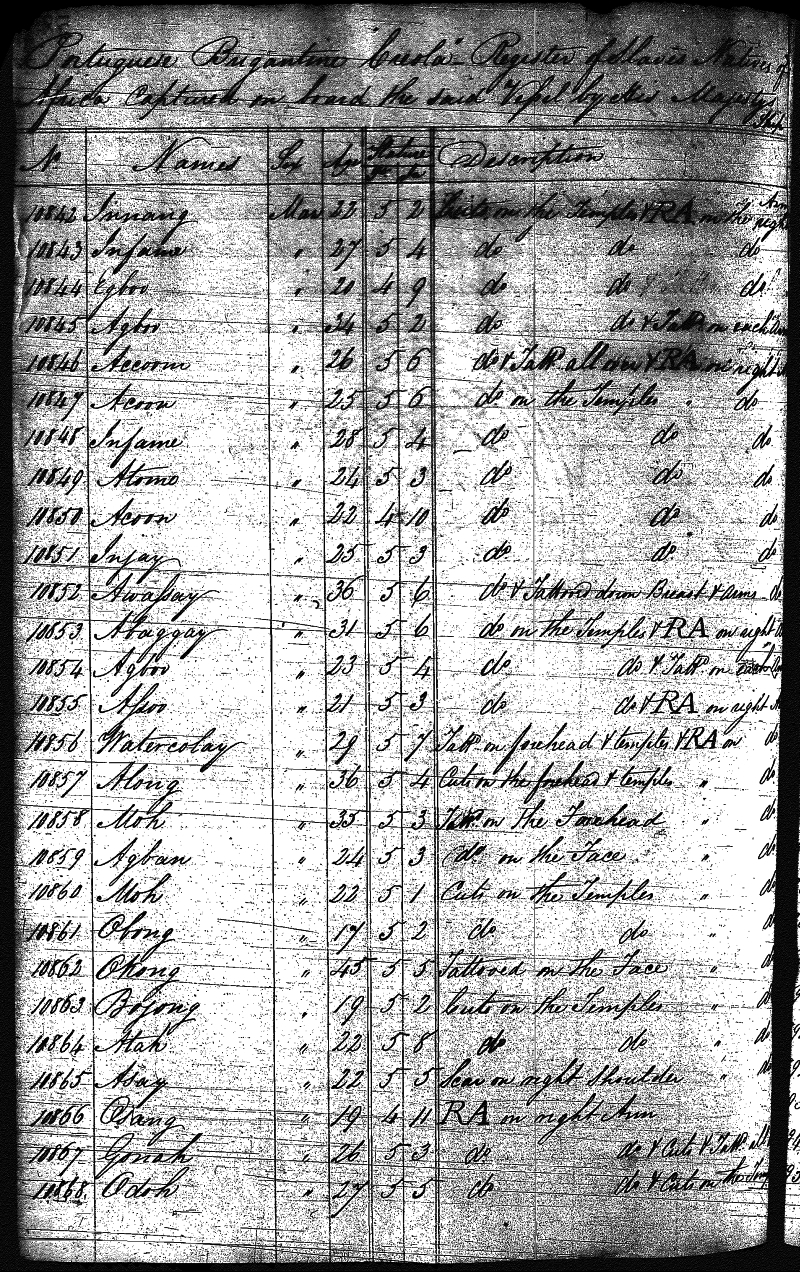 Portuguese Brigantine "Creola" Register of Slaves Natives of
Africa Captured on board the said Vessel by His Majesty's
Ship
No. Names Sex Age Stature Description
Ft In
10842 Innang Man 22 5 2 Cuts on the Temples & RA on the right Arm
10843 Infame " 27 5 4 do do do
10844 Egboo " 20 4 9 do do do
10845 Agboo " 34 5 2 do do & Tattd. on each Arm
10846 Accoom " 26 5 6 do & Tattd. all over & RA on right
10847 Acoon " 25 5 6 do on the Temples " do
10848 Infame " 28 5 4 do do do
10849 Atome " 24 5 3 do do do
10850 Acoon " 22 4 10 do do do
10851 Injay " 25 5 3 do do do
10852 Awassay " 36 5 6 do & Tattooed down Breast & Arms do
10853 Abaggay " 31 5 6 do on the Temples & RA on right
10854 Agboo " 23 5 4 do do & Tattd. on
10855 Assoo " 21 5 3 do do & RA on right
10856 Watercolay " 29 5 7 Tattd. on forehead & temples & RA on do
10857 Along " 36 5 4 Cuts on the forehead & temples " do
10858 Moh " 35 5 3 Tattd. on the Forehead " do
10859 Agban " 24 5 3 do on the Face " do
10860 Moh " 22 5 1 Cuts on the Temples " do
10861 Obong " 17 5 2 do do " do
10862 Okong " 45 5 5 Tattooed on the Face " do
10863 Bojong " 19 5 2 Cuts on the Temples " do
10864 Atah " 22 5 8 do do " do
10865 Asay " 22 5 5 Scar on right Shoulder " do
10866 Osang " 19 4 11 RA on right Arm
10867 Gonah " 26 5 3 do do & Cuts & Tattd. all
10868 Odoh " 27 5 5 do do & Cuts on the Temp